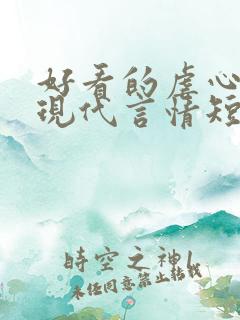 好看的虐心
現代言情短
時空之神
未经同意禁止转载